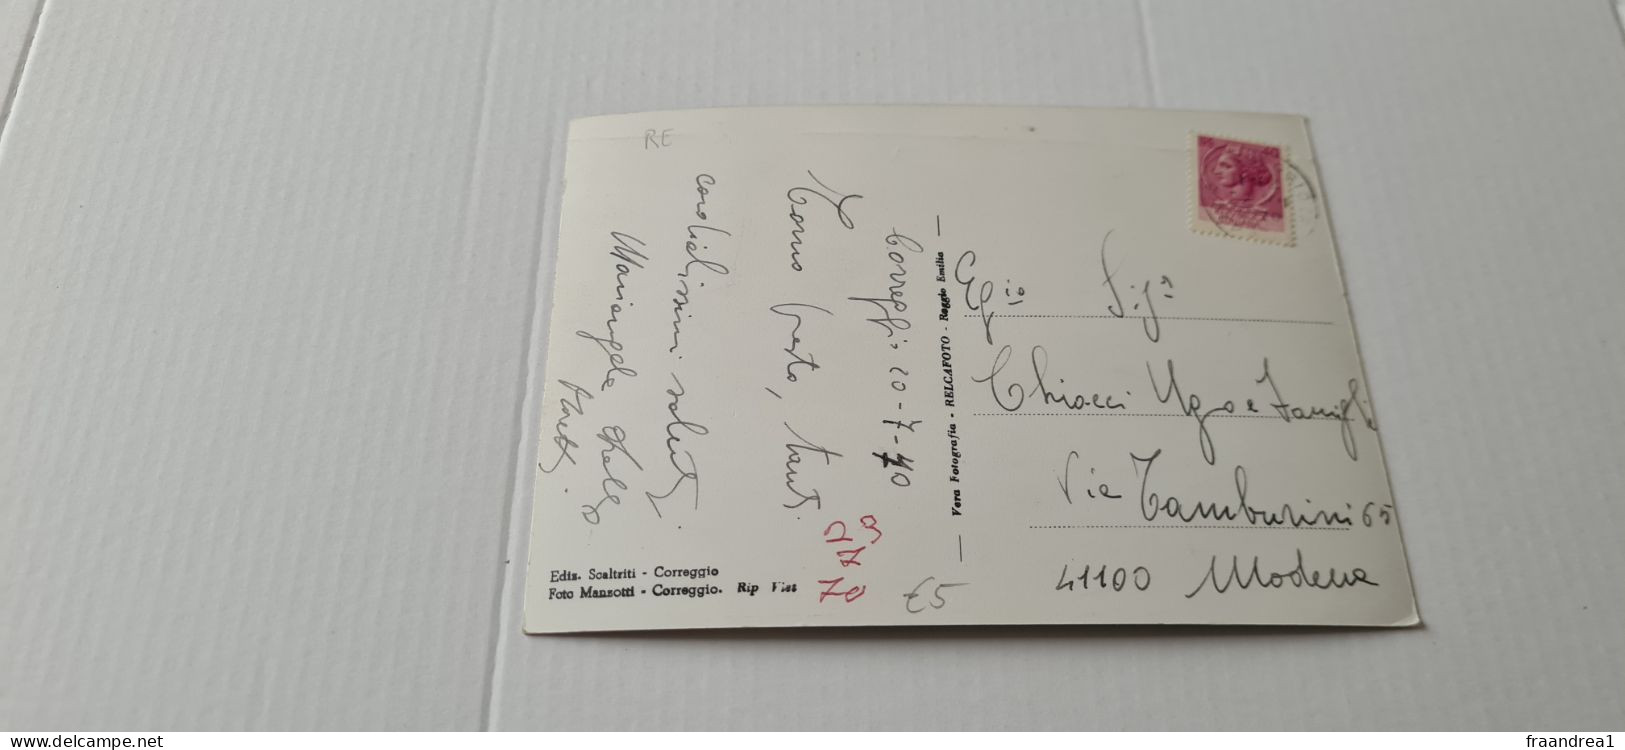 RE
Correggio 20-7-70
Torno presto, tanti
cordialissimi saluti.
Mariangela
Ediz. Scaltriti - Correggio
Foto Manzotti - Correggio. Rip Viet
70
€5
Vera Fotografia - RELCAFOTO - Reggio Emilia
Egr. Sig.
Chiacci Ugo e Famiglia
Via Tamburini 65
41100 Modena
www.delcampe.net
fraandrea1